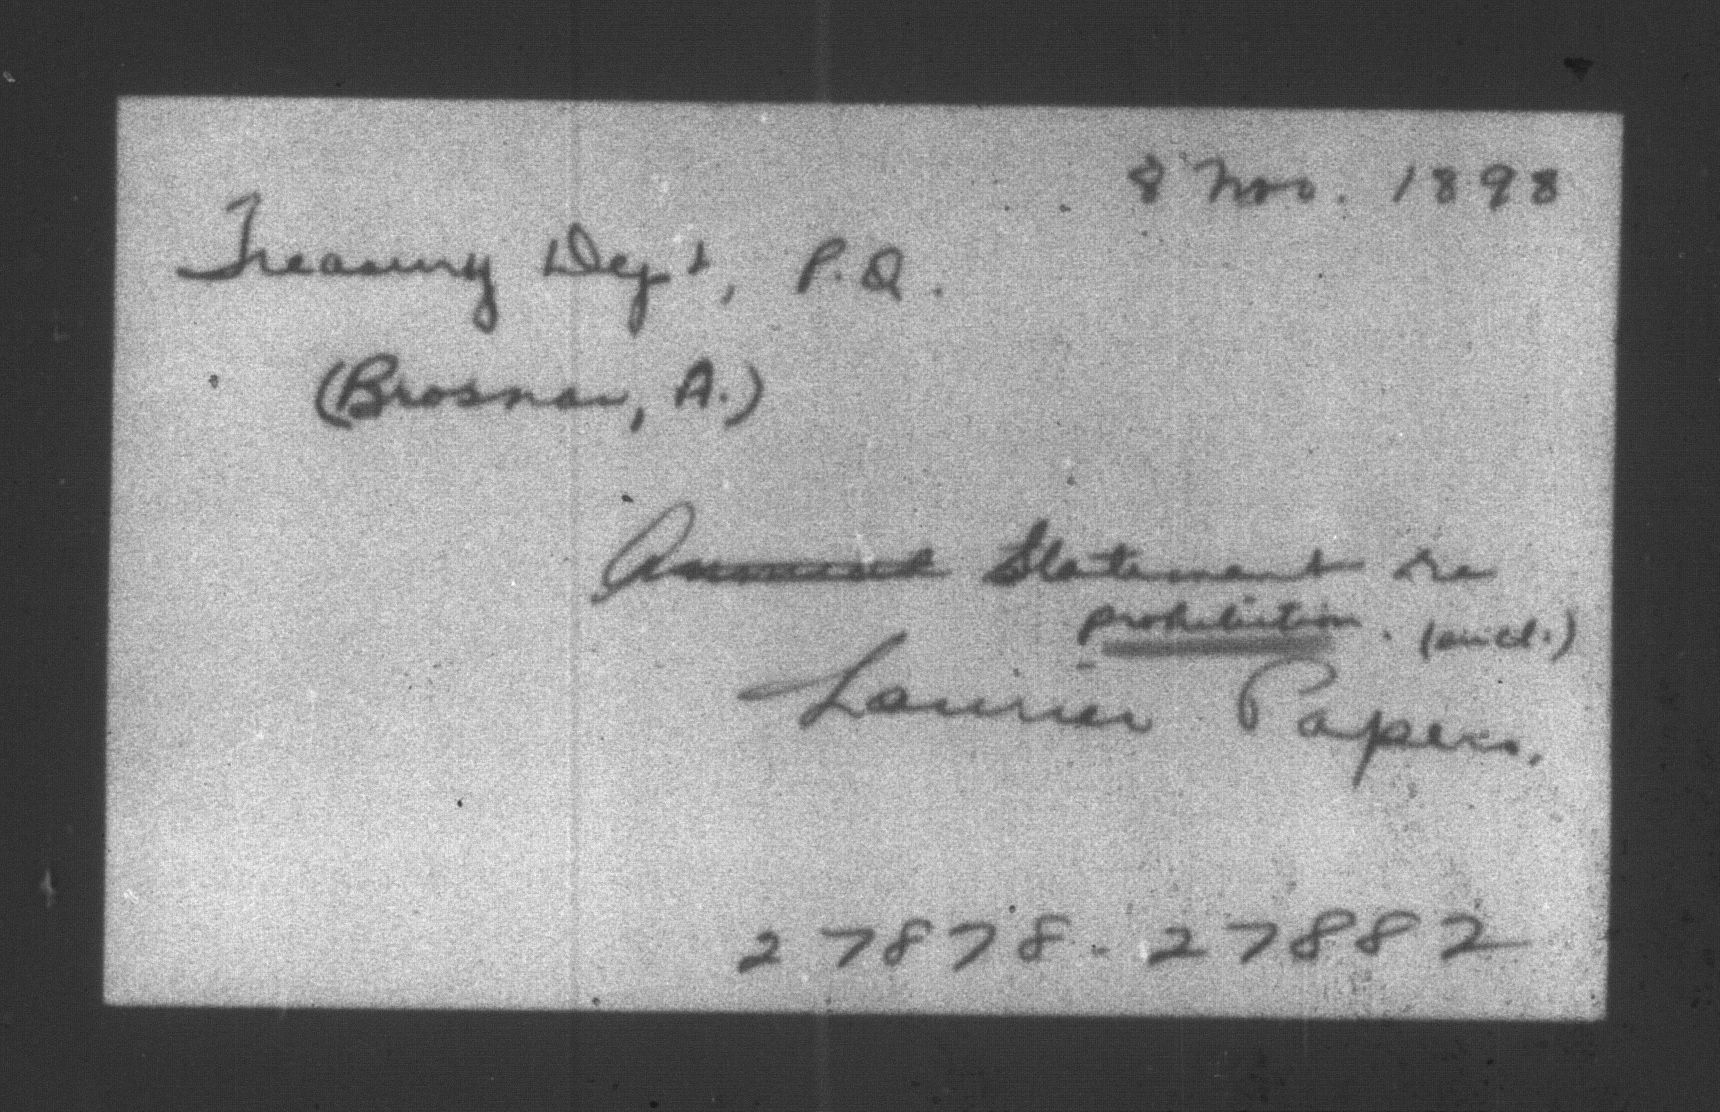 8 Nov. 1898
Treasury Dept, P.Q.
(Brosnan, A.)
Statement re
prohibition. (encl.)
Laurier Papers.
27878-27882